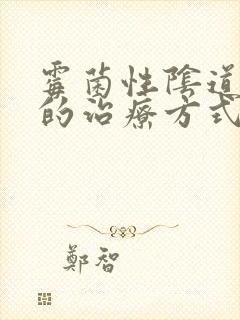 霉菌性陰道
的治療方式
鄭智